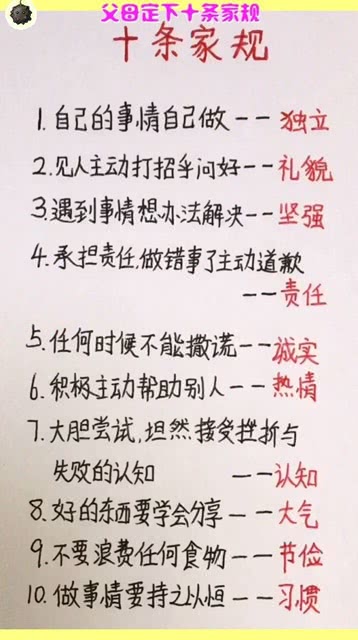 父母定下十条家规
十条家规
1.自己的事情自己做——独立
2.见人主动打招乎问好——礼貌
3.遇到事情想办法解决——坚强
4.承担责任,做错事了主动道歉
——责任
5.任何时候不能撒谎——诚实
6.积极主动帮助别人——热情
7.大胆尝试,坦然接受挫折与
失败的认知 ——认知
8.好的东西要学会分享——大气
9.不要浪费任何食物——节俭
10.做事情要持之以恒——习惯